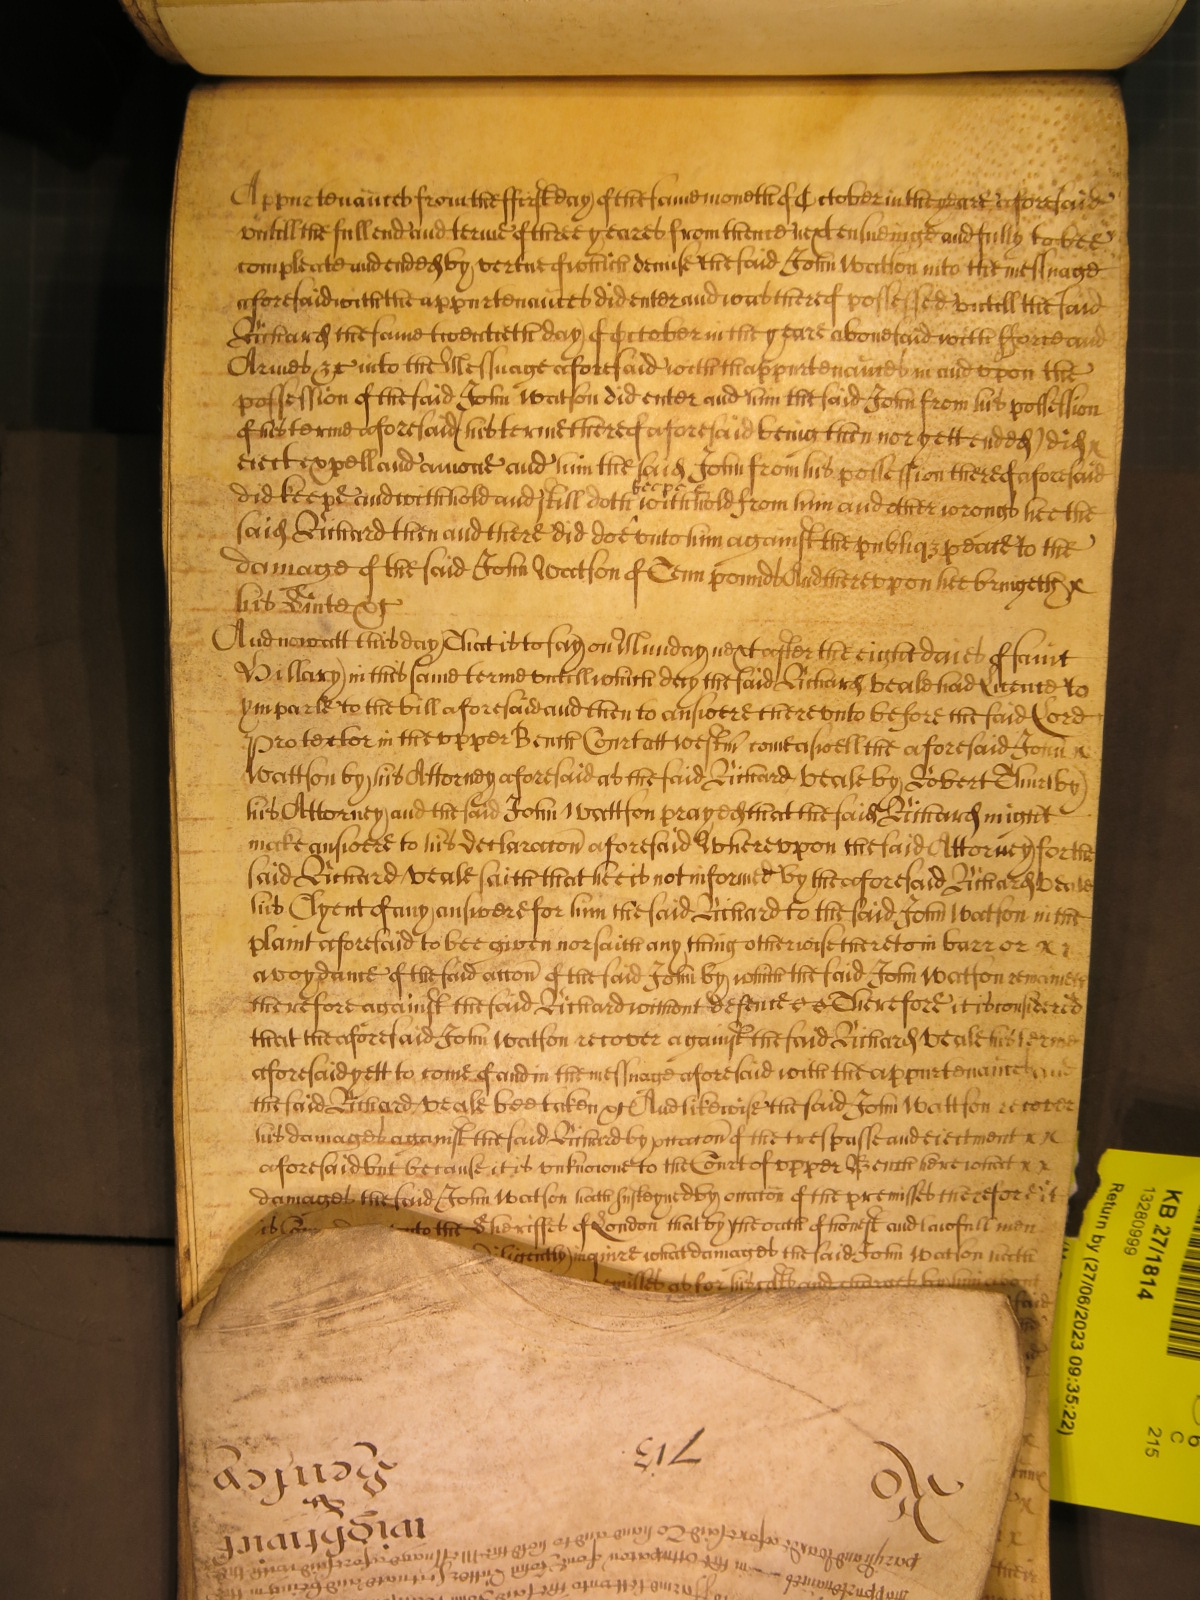 Appurtenances from the ffirst day of the same moneth of October in the yeare aforesaid
untill the full end and terme of three yeares from thence next ensueinge and fully to bee
compleate and ended by vertue of which demise the said John Watson into the messuage
aforesaid with the appurtenances did enter and was thereof possessed untill the said
Richard the same twentieth day of October in the yeare abovesaid with fforce and
Armes &c into the Messuage aforesaid with thappurtenances in and upon the
possession of the said John Watson did enter and him the said John from his possession
of his terme aforesaid (his terme thereof aforesaid being then nor yett ended) did x
eiect expell and amove and him the said John from his possession thereof aforesaid
did keepe and withhold and still doth keepe & withhold from him and other wrongs hee the
said Richard then and there did doe unto him against the publiq3 peace to the
damage of the said John Watson of Tenn pounds And thereupon hee bringeth x
his Suite &c
And now att this day That is to say on Munday next after the eight daies of saint
Hillary in this same terme untill which day the said Richard Veale had Licence to
ymparle to the bill aforesaid and then to answere thereunto before the said Lord
Protector in the upper Bench Court att Westm̃ come aswell the aforesaid John x
Wattson by his Attorney aforesaid as the said Richard Veale by Robert Thurlby
his Attorney and the said John Wattson prayed that the said Richard might
make answere to his declaracon̄ aforesaid Whereupon the said Attorney for the
said Richard Veale saith that hee is not informed by the aforesaid Richard Veale
his Clyent of any answere for him the said Richard to the said John Watson in the
plaint aforesaid to bee given nor saith any thing otherwise thereto in barr or x x
avoydance of the said accon̄ of the said John by which the said John Watson remaines
therefore against the said Richard without defence &c Therefore it is considered
that the aforesaid John Watson recover against the said Richard Veale his terme
aforesaid yett to come of and in the messuage aforesaid with the appurtenances and
the said Richard Veale bee taken &c And likewise the said John Wattson recover
his damages against the said Richard by occacon̄ of the trespasse and eiectment x x
aforesaid but because it is unknowne to the Court of upper Bench here what x x
damages the said John Watson hath susteyned by occacon̄ of the premisses therefore it
is unto the Sheriffes of London that by the oath of honest and lawfull men
diligently inquire what damages the said John Watson hath
as for his costs and charges by him about
said
713
Ro
Henley
&
Wightwic
KB 27/1814
13280999
Return by (27/06/2023 09:35:22)
C
215